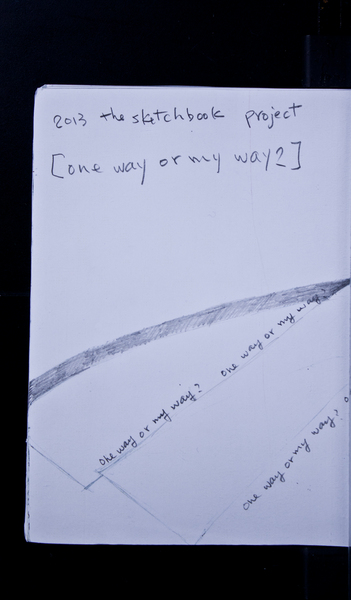 2013 the sketchbook project
[one way or my way?]
one way or my way?
one way or my way?
one way or my way?